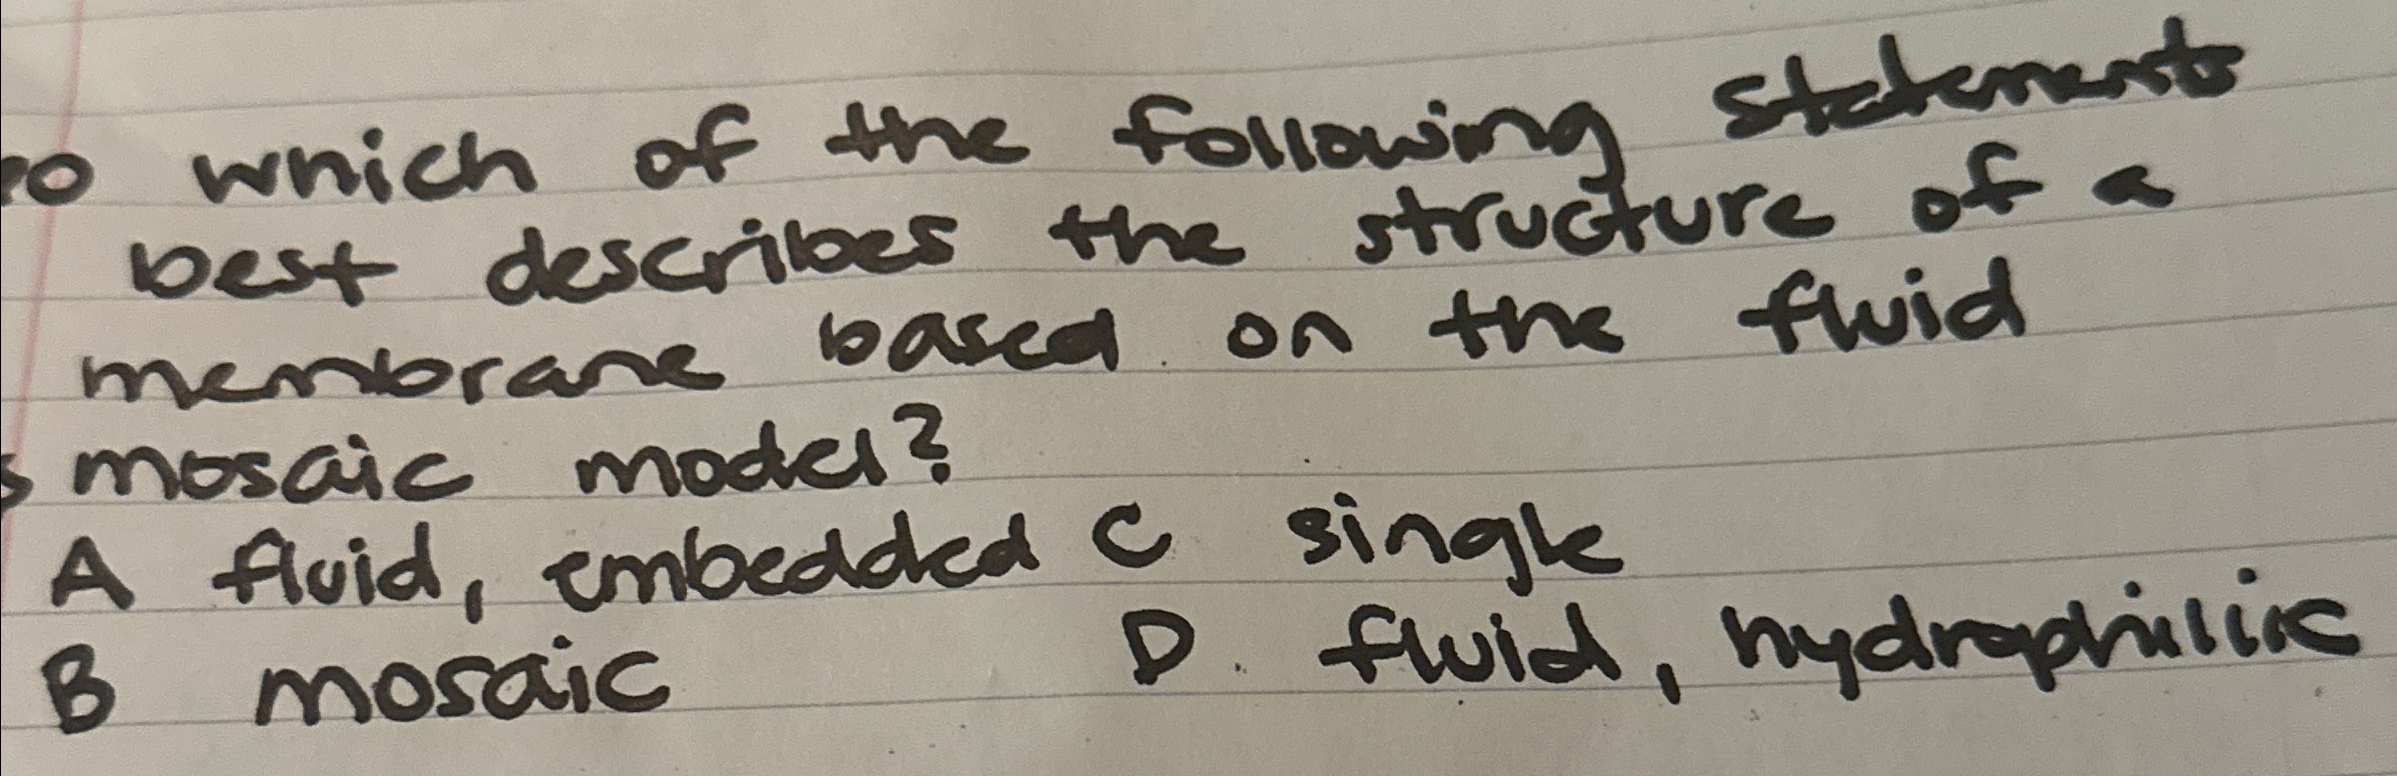 which of the following statements
best describes the structure of a
membrane based on the fluid
mosaic model?
A fluid, embedded C single
B mosaic D. fluid, hydrophilic